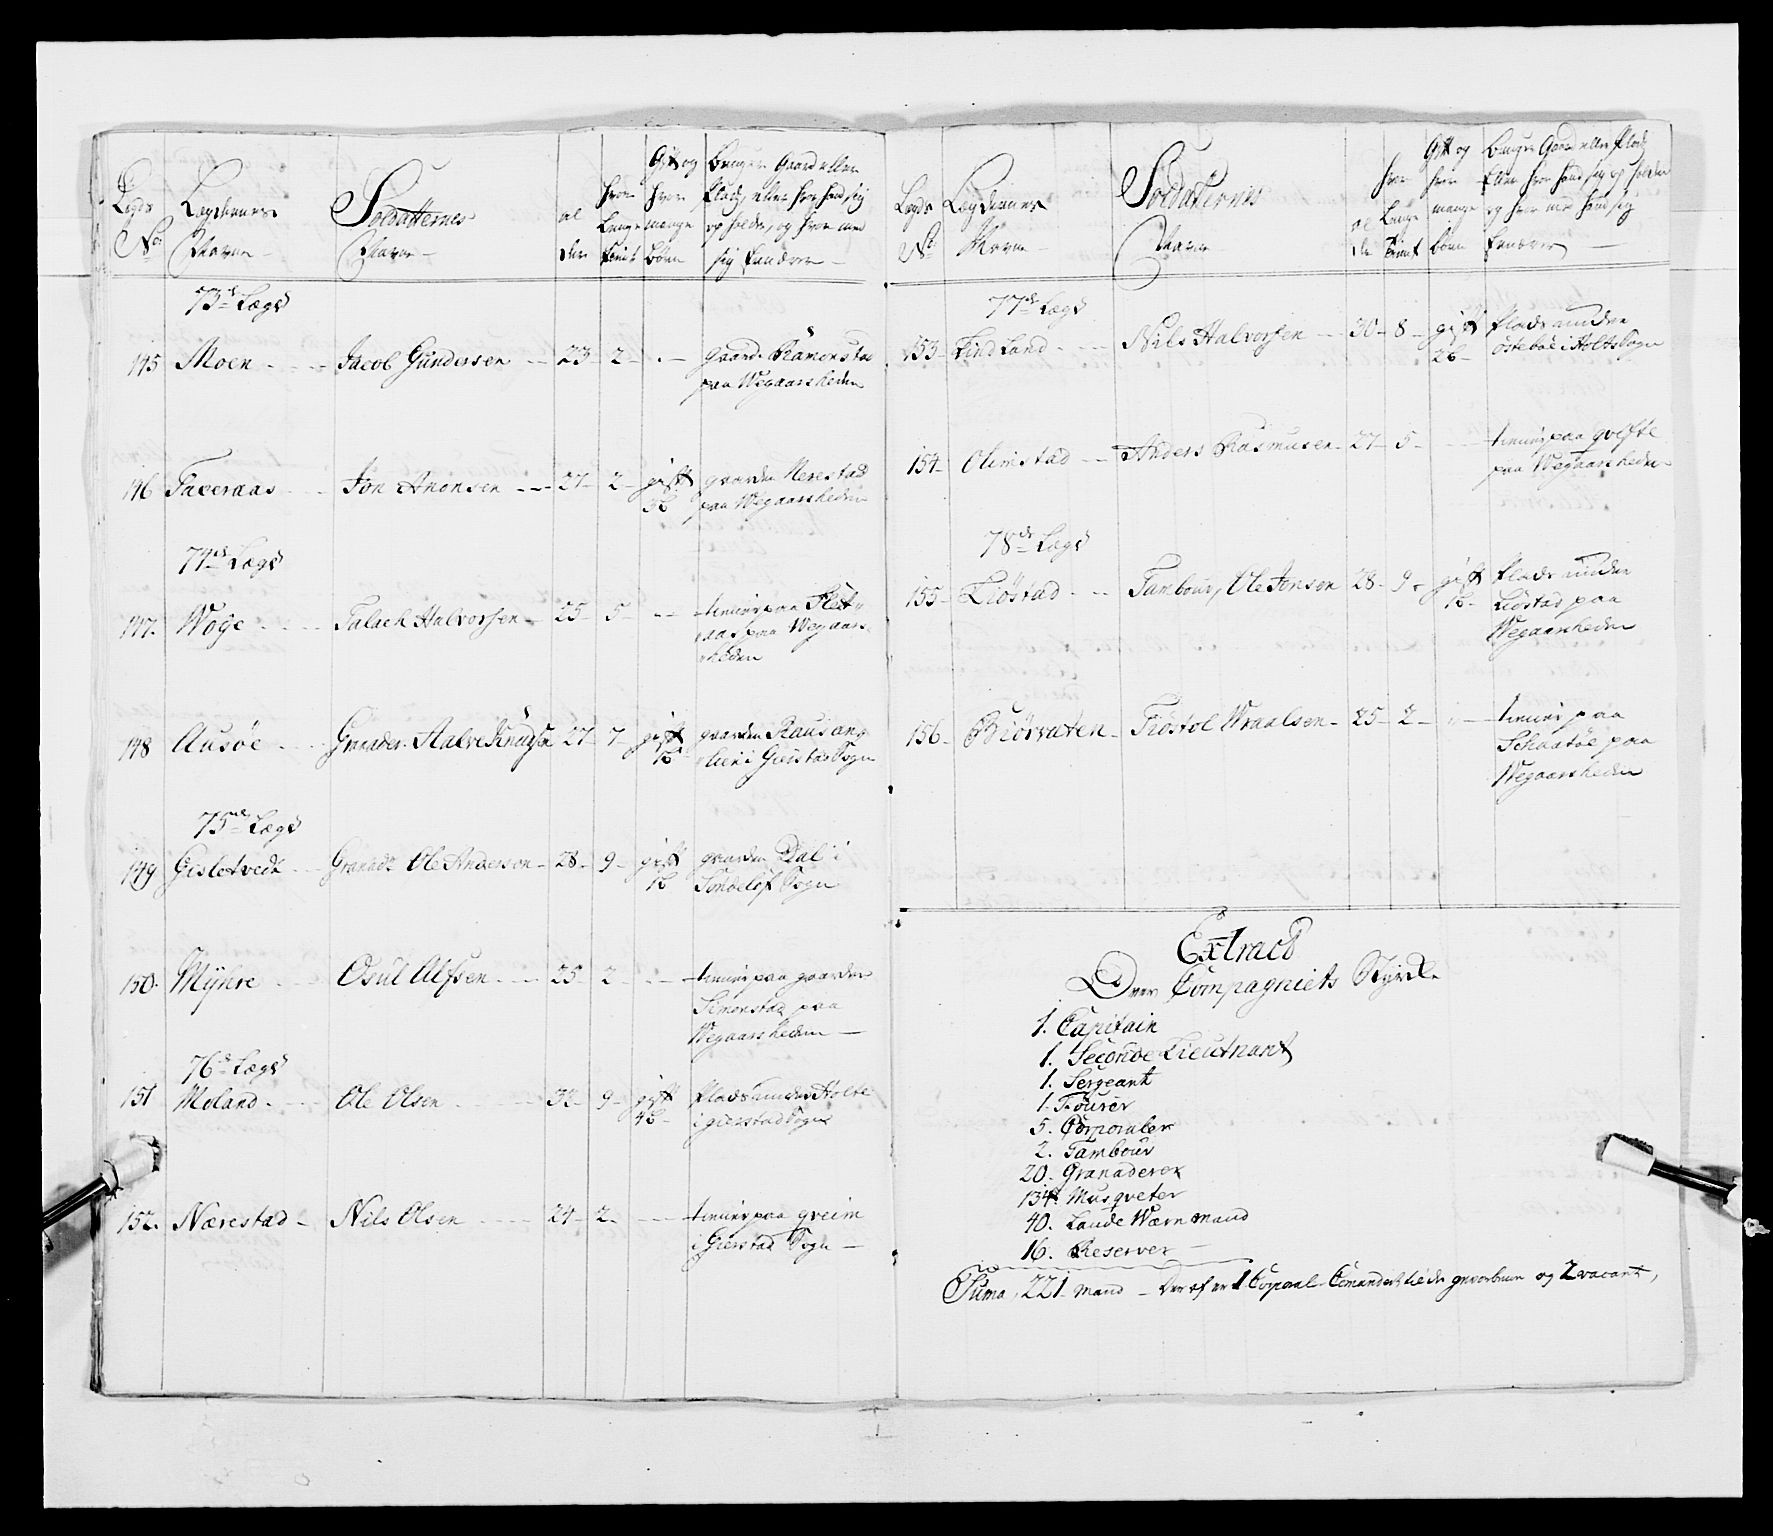 Lægds No: | Lægdernes Nafne | Soldatternes Nafne | al der | hvor længe tient | Gift og hvor mange börn | bruger Gaard eller Plads, eller hvor hand sig opholder, og hvor med sig ernærer
73de Lægd
145 Moen - Jacob Gundersen - 23 - 2 - - gaard Ramonstad
paa Wegaarsheden
146 Faceraas - Jon Anonsen - 27 - 2 - gift gaarden Nerestad
3b paa Wegaarsheden
74de Lægd
147. Woge - Talack Halvorsen - 25 - 5 - - tiener paa Flat
aas paa Wegaars
heden
148 Ausöe - Granader Aalve Knudsen 27 - 7 - gift gaarden Rausan
1b lien i Gierstad Sogn
75de Lægd
149 Gisletvedt - Granadr Ole Anderson - 28 - 9 - gift gaarden Dal i
1b Söndeløf Sogn
150. Mÿhre - Osul Alfsen - 25 - 2 - - tiener paa gaarden
Simonstad paa
Wegaarsheden
76de Lægd
151 Moland - Ole Olsen - 32 - 9 - gift Plads under Holte
4b i gierstad Sogn
152. Nærestad - Nils Olsen - 24 - 2 - - tiener paa gveim
i Gierstad Sogn
Lægds No | Lægdernes Nafne | Soldatternes Nafne | al der | hvor længe tient | Gift og hvor mange börn | bruger Gaard eller Plads eller hvor hand sig opholder og hvor med hand sig ernærer
77de Lægd
153 - Lindland - Nils Halvorsen - 30 - 8 - gift Plads under
2b - östeboe i Holts Sogn
154 - Olimstad - Anders Rasmusen - 27 - 5 - - tiener paa gvefte
paa Wegaarsheden
78de Lægd
155 - Liöstad - Tambour, Ole Jonsen 28 - 9 - gift Plads under
1b - Liöstad paa
Wegaarsheden
156 - Biörvaten - Tiöstol Wraalsen - 25 - 2 - - tiener paa
Schaatöe paa
Wegaarsheden
Extract
Over Compagniets Styrke
1. Capitain
1. Seconde Lieutnant
1. Sergeant
1. Fourer
5. Corporaler
2. Tambour
20. Granaderer
134. Musqveter
40. Lande Wærn mand
16. Reserver
Suma, 221 mand - Der af er 1 Corporal Comandert til de gevorbnen og 2 vacant,